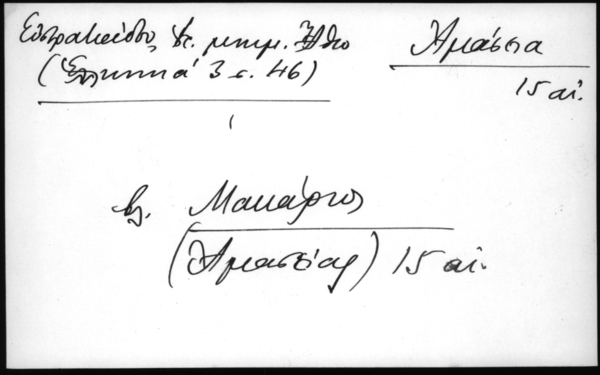 Εὐστρατιάδου, Ἁγ. μνημ. Ἄθω
(Ἑλληνικά 3 σ. 46)
Ἀμάσεια
15 αἰ.
βλ. Μακάριος
(Ἀμασείας) 15 αἰ.